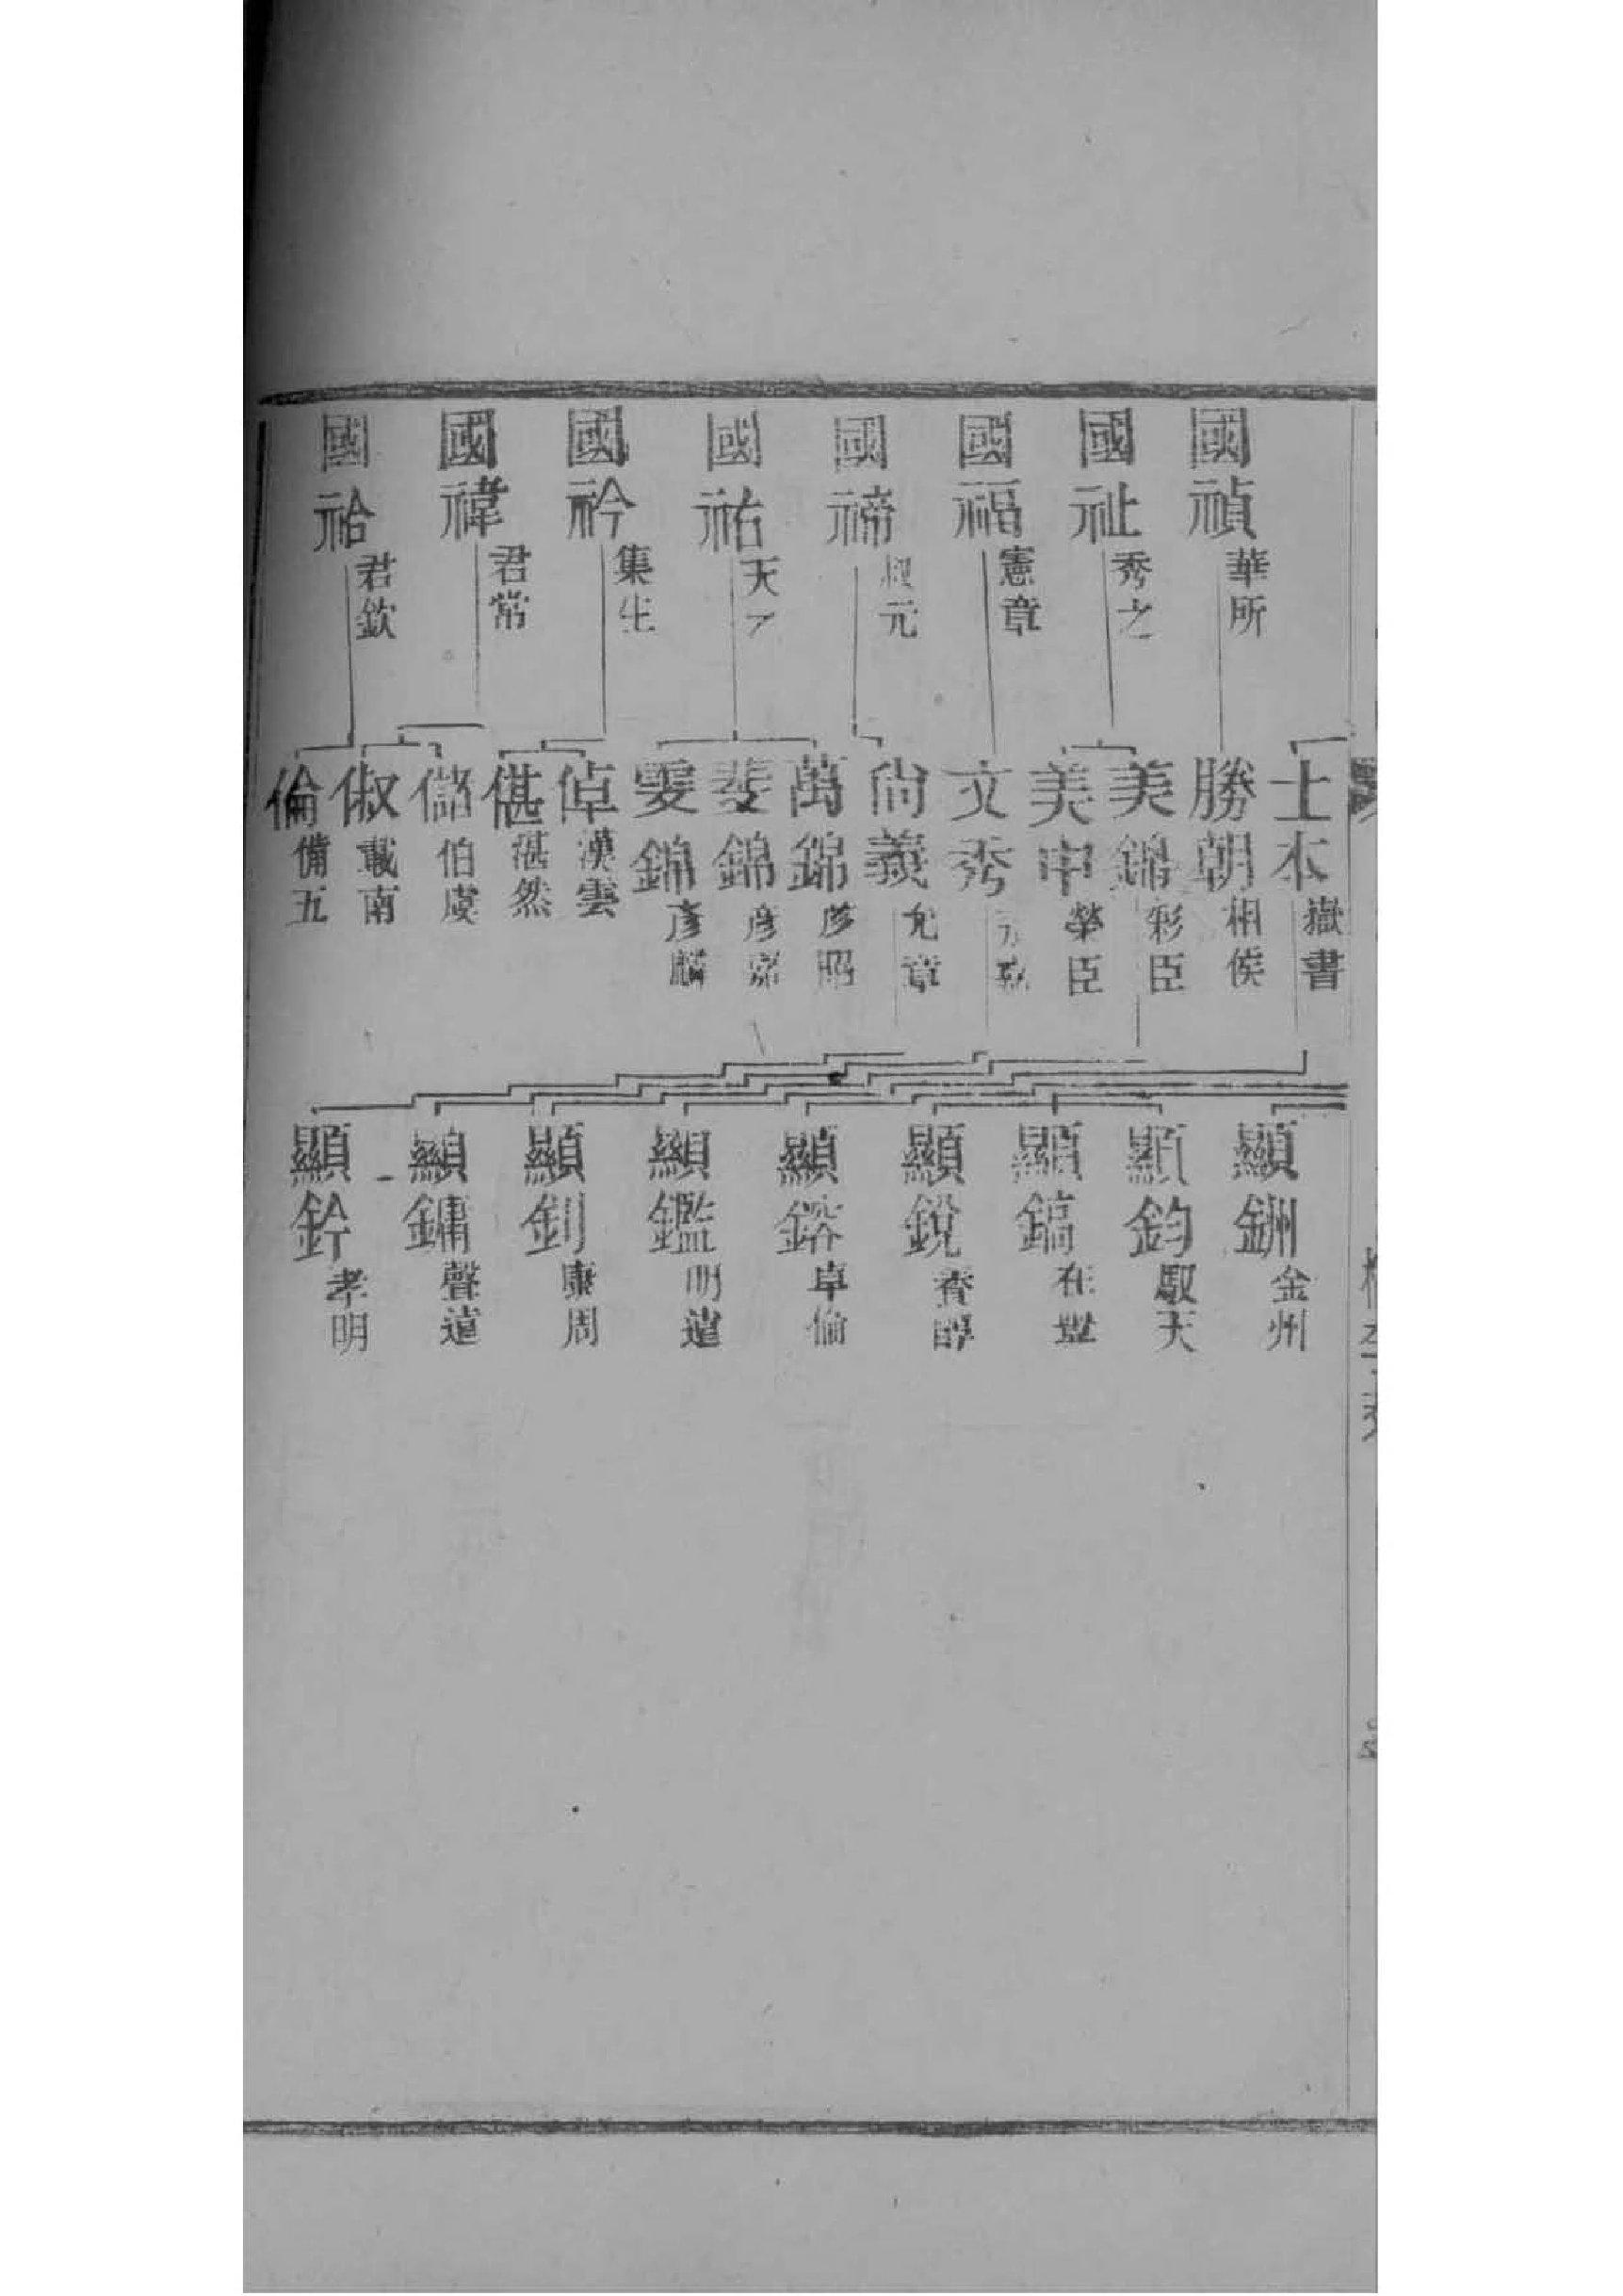 國禎 華所
國祉 秀之
國福 憲章
國禘 元
國祐 天
國衿 集生
國禕 君常
國祫 君欽
士本 嶽書
勝朝 相侯
美錦 彩臣
美中 榮臣
文秀
尙義 允章
萬錦 彥昭
斐錦 彥
雯錦 彥麟
倬 漢雲
偡 湛然
儲 伯虔
俶 載南
倫 備五
顯銂 金州
顯鈞 馭天
顯鎬 在豐
顯銳 養醇
顯鎔 卓倫
顯鑑 明遠
顯釗 康周
顯鏞 聲遠
顯鈐 孝明